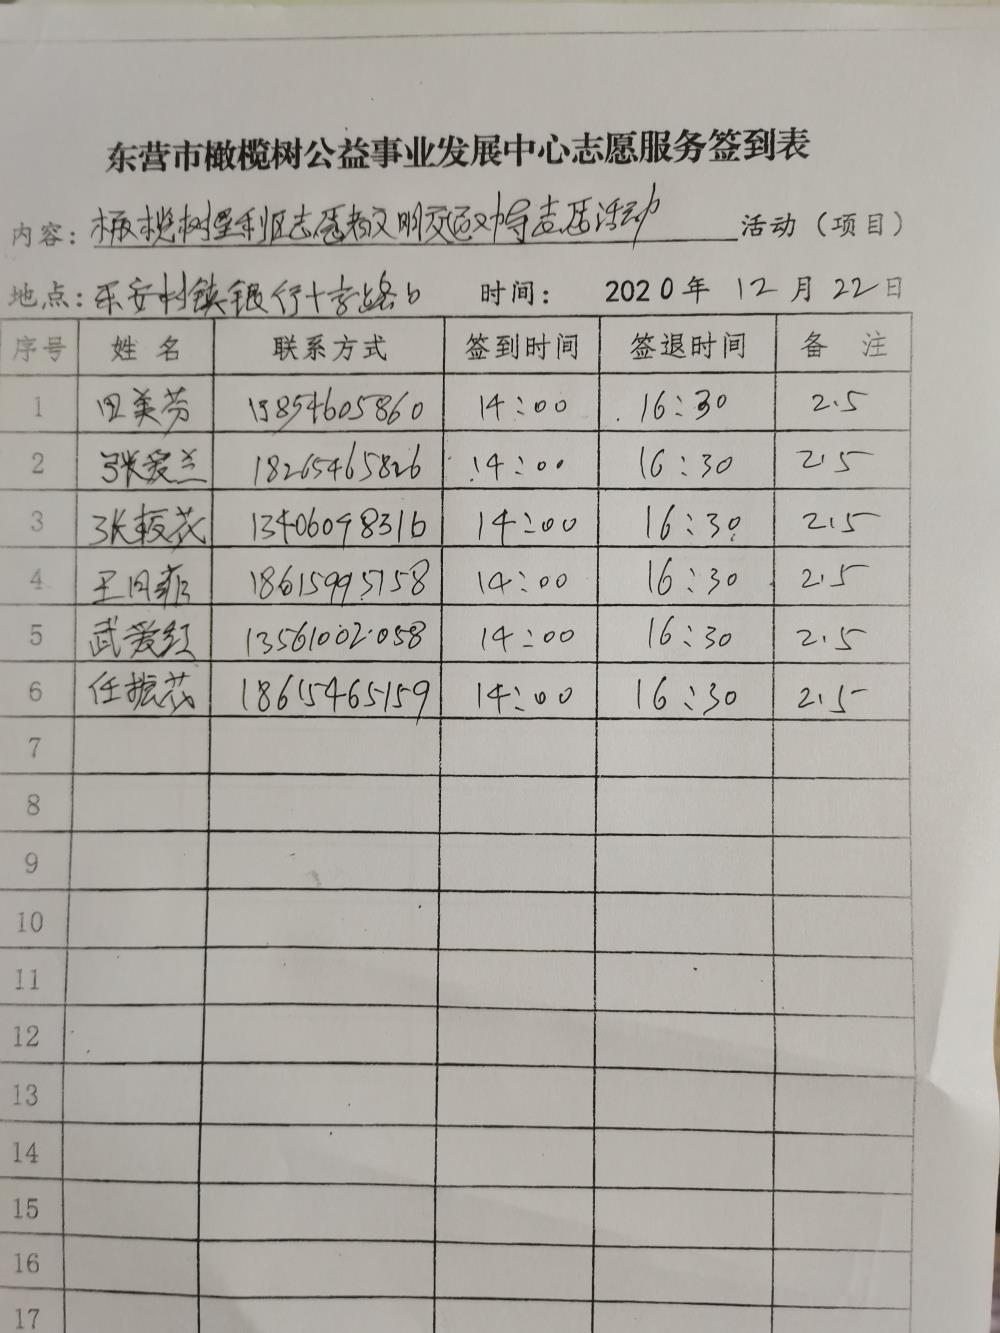 东营市橄榄树公益事业发展中心志愿服务签到表
内容：橄榄树垦利区志愿者文明交通文明督导志愿活动 活动（项目）
地点：乐安村镇银行十字路口 时间： 2020年 12月 22日
序号 姓 名 联系方式 签到时间 签退时间 备 注
1 田美芳 13854605860 14:00 16:30 2.5
2 张爱兰 18265465826 14:00 16:30 2.5
3 张 花 13406098316 14:00 16:30 2.5
4 王 14:00 16:30 2.5
5 武爱红 13561002058 14:00 16:30 2.5
6 任振花 18615465159 14:00 16:30 2.5
7
8
9
10
11
12
13
14
15
16
17